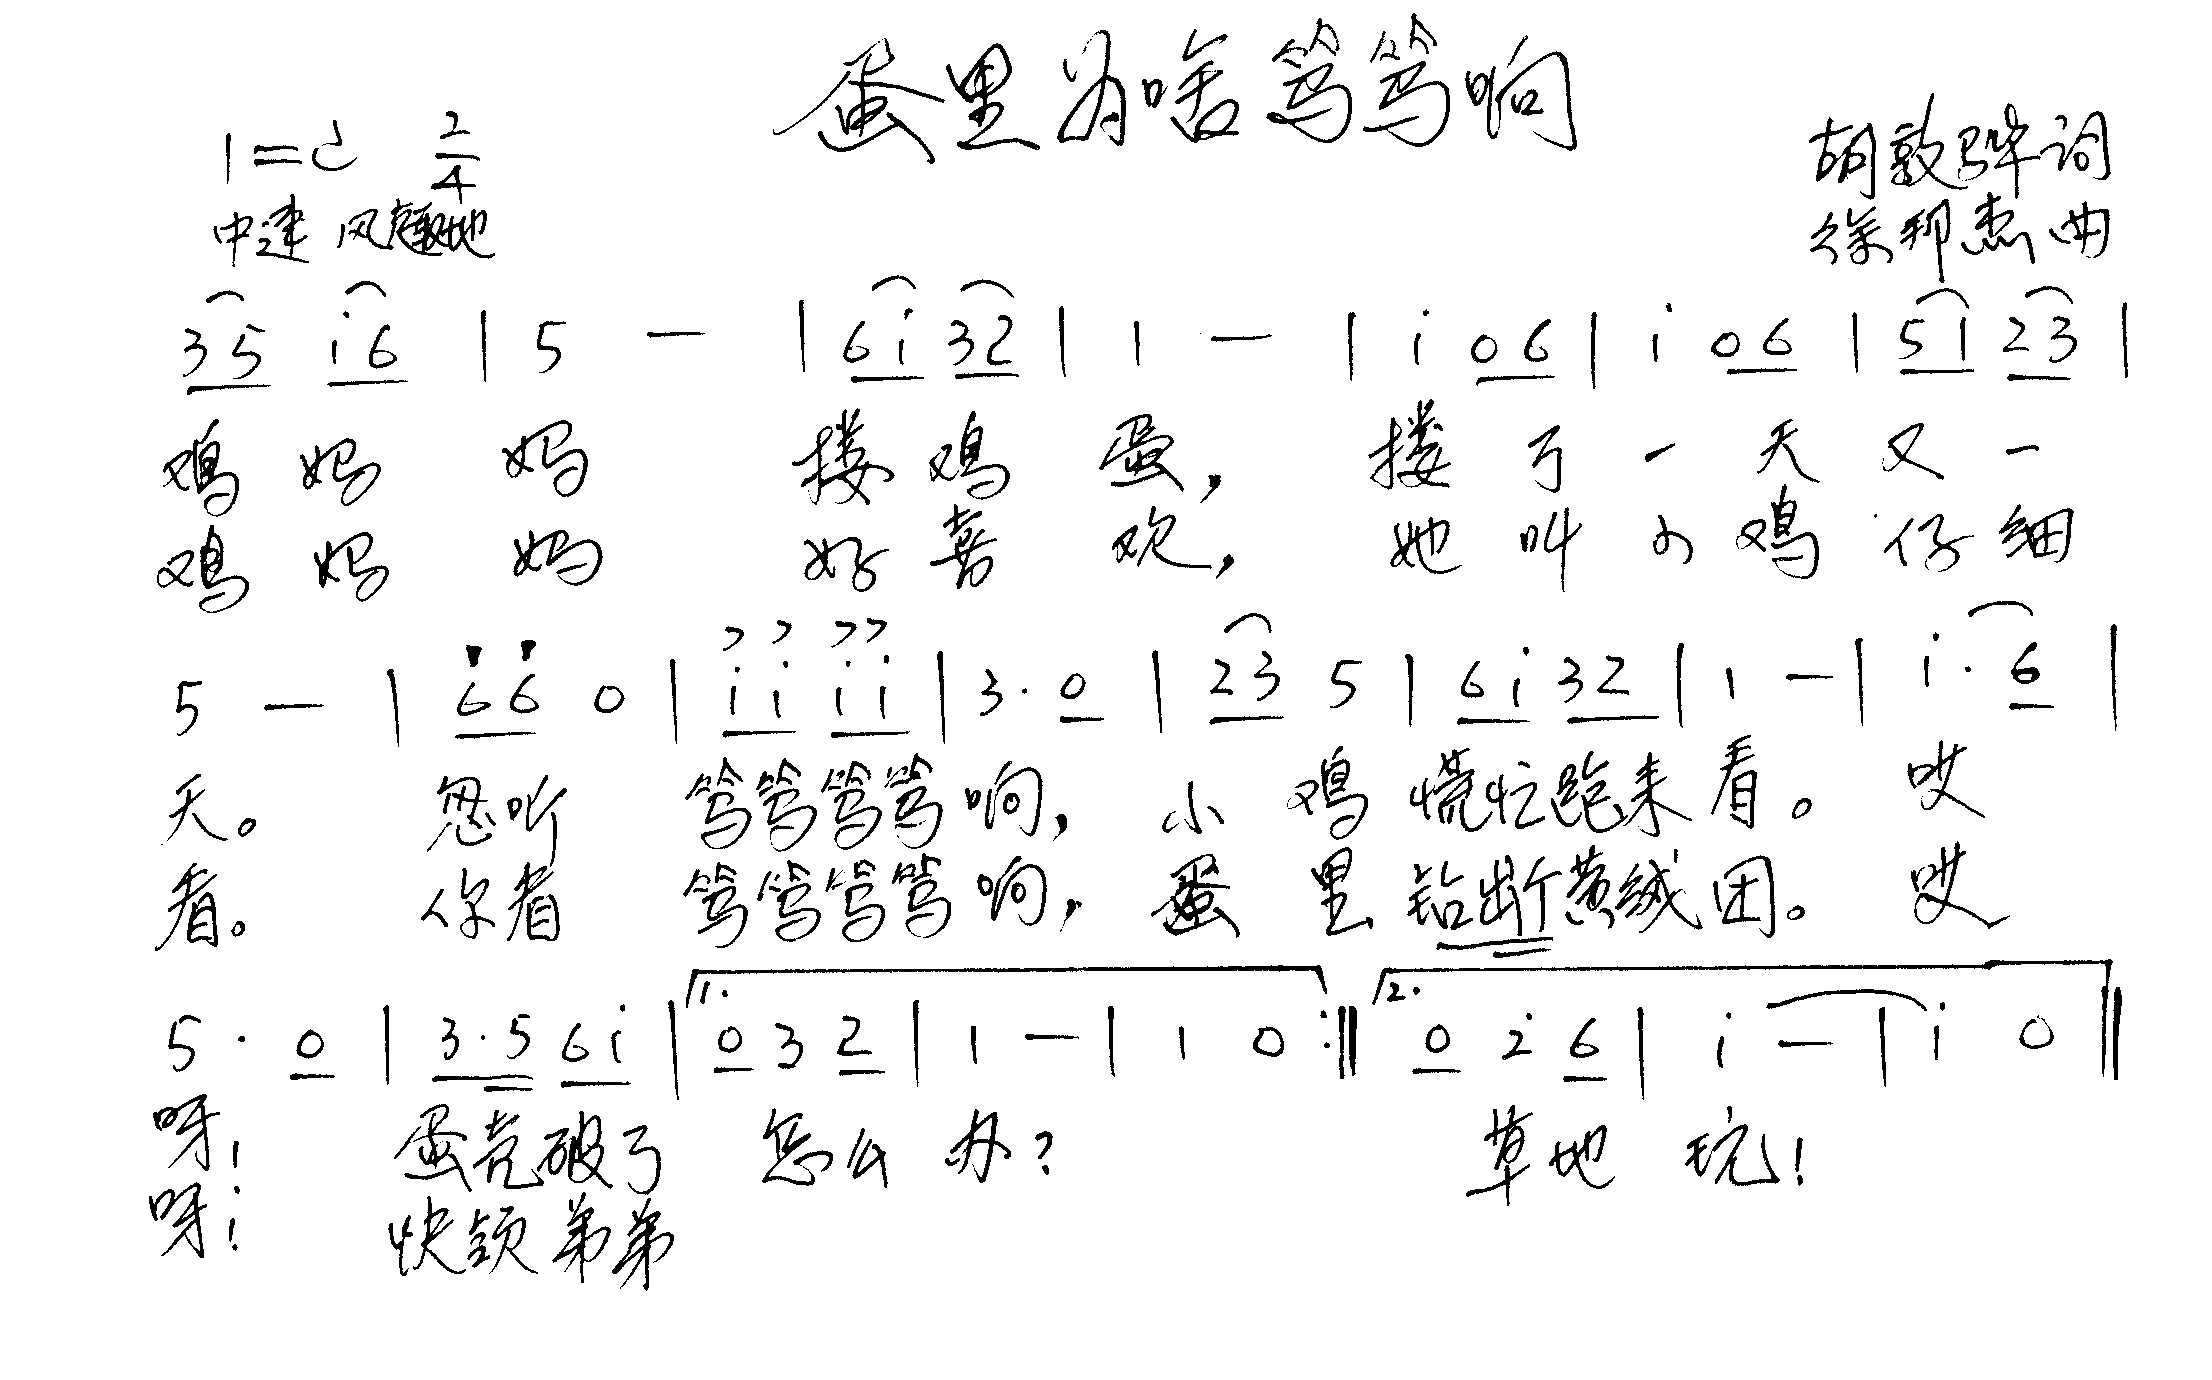 蛋里为啥笃笃响
1=C 2/4
胡敦骅词
中速 风趣地
徐邦杰曲
35 i6 | 5 — | 6i 32 | 1 — | i 06 | i 06 | 51 23 |
鸡妈妈 搂鸡蛋，搂了一天又一
鸡妈妈 好喜欢，她叫小鸡仔细
5 — | 66 0 | ii ii | 3· 0 | 23 5 | 6i 32 | 1 — | i· 6 |
天。忽听 笃笃笃笃响，小鸡慌忙跑来看。哎
看。你看 笃笃笃笃响，蛋里钻出黄绒团。哎
5· 0 | 3·5 6i | 1. 0 3 2 | 1 — | 1 0 :‖ 2. 0 2 6 | i — | i 0 ‖
呀！蛋壳破了 怎么办？ 草地 玩！
呀！快领弟弟